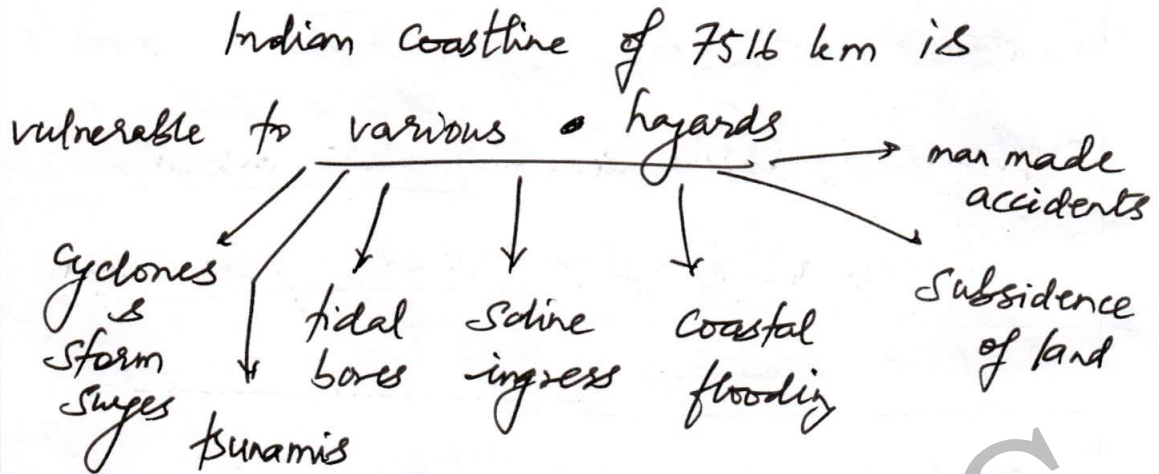 Indian Coastline of 7516 km is
vulnerable to various hazards
man made
accidents
Cyclones
&
storm
surges
tsunamis
tidal
bores
saline
ingress
coastal
flooding
subsidence
of land